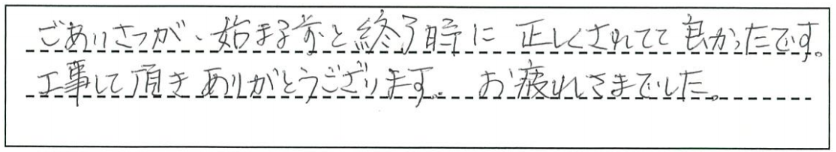 ごあいさつが、始まる前と終了時に正しくされてて良かったです。
工事して頂きありがとうございます。お疲れさまでした。